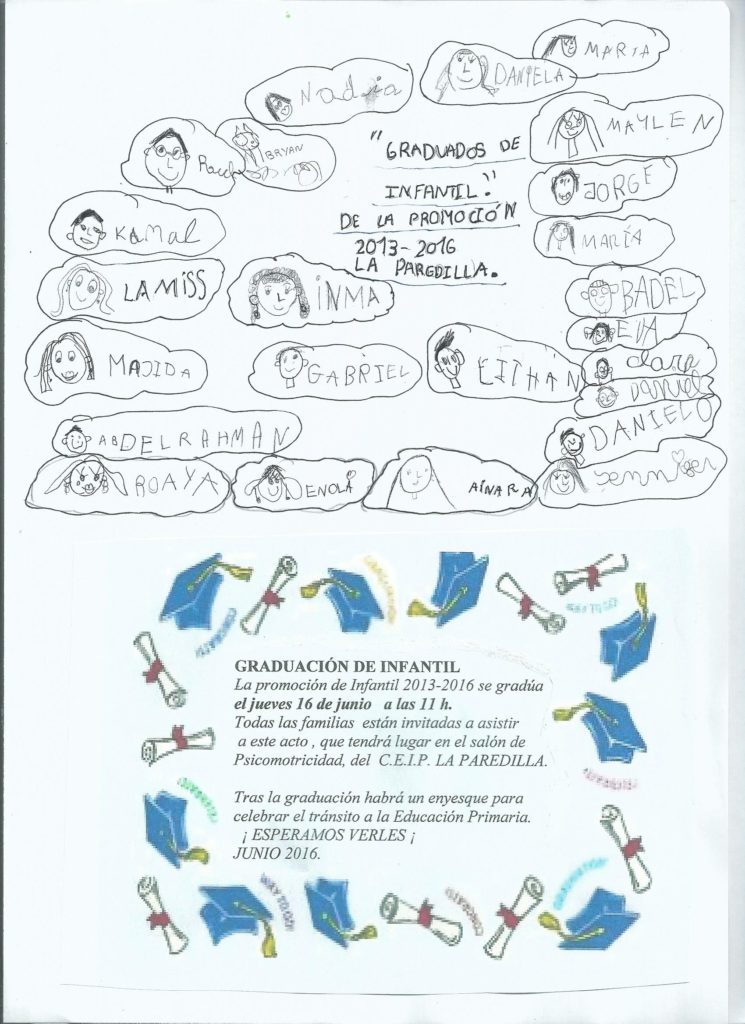 MARIA
DANIELA
Nadia
MAYLEN
BRYAN
"GRADUADOS DE
INFANTIL."
DE LA PROMOCIÓN
2013-2016
LA PAREDILLA.
JORGE
KAMAL
MARÍA
LAMISS
INMA
BADEL
EVA
MAJIDA
GABRIEL
EITHÁN
clara
Daniel
DANIELO
ABDELRAHMAN
ROAYA
ENOLA
AINARA
Jennifer
GRADUACIÓN DE INFANTIL
La promoción de Infantil 2013-2016 se gradúa
el jueves 16 de junio a las 11 h.
Todas las familias están invitadas a asistir
a este acto , que tendrá lugar en el salón de
Psicomotricidad, del C.E.I.P. LA PAREDILLA.
Tras la graduación habrá un enyesque para
celebrar el tránsito a la Educación Primaria.
¡ ESPERAMOS VERLES ¡
JUNIO 2016.